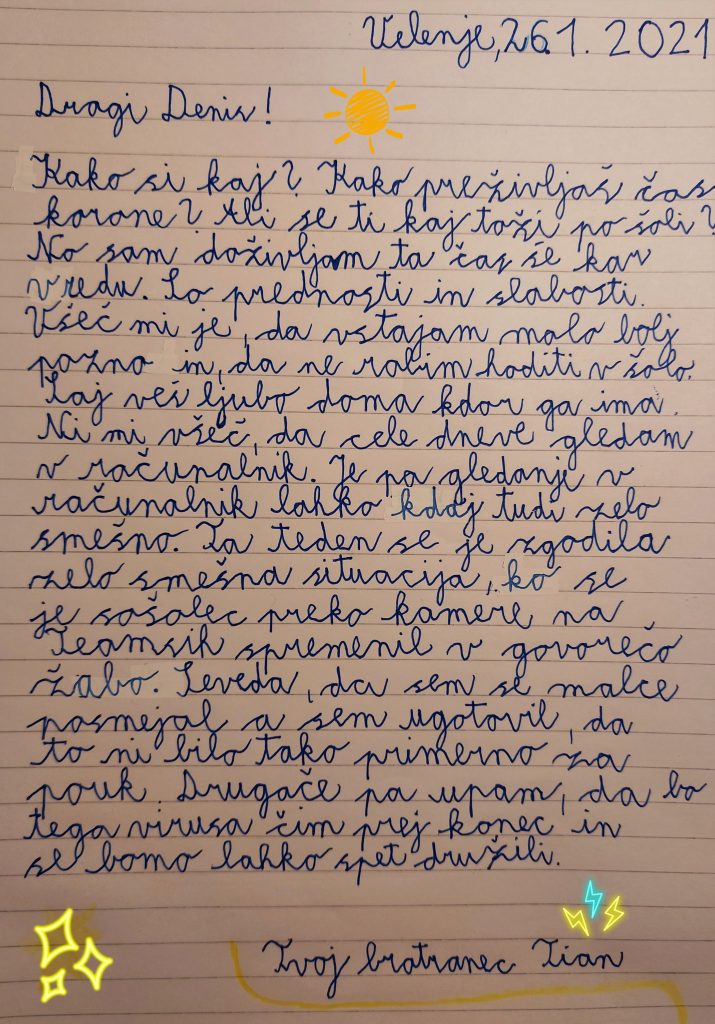 Velenje, 26.1. 2021
Dragi Denis!
Kako si kaj? Kako preživljaš čas
korone? Ali se ti kaj toži po šoli?
No sam doživljam ta čas še kar
v redu. So prednosti in slabosti.
Všeč mi je, da vstajam malo bolj
pozno in, da ne rabim hoditi v šolo.
Saj veš ljubo doma kdor ga ima.
Ni mi všeč, da cele dneve gledam
v računalnik. Je pa gledanje v
računalnik lahko kdaj tudi zelo
smešno. Ta teden se je zgodila
zelo smešna situacija, ko se
je sošolec preko kamere na
Teamsih spremenil v govorečo
žabo. Seveda, da sem se malce
posmejal a sem ugotovil, da
to ni bilo tako primerno za
pouk. Drugače pa upam, da bo
tega virusa čim prej konec in
se bomo lahko spet družili.
Tvoj bratranec Tian